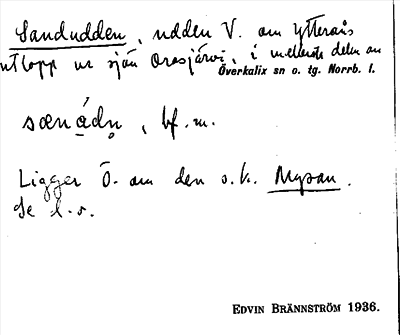 Sandudden, udden V. om Ytterais
utlopp ur sjön Orasjärvi, i mellersta delen av
Överkalix sn o. tg. Norrb. l.
sænádṇ, bf. m.
Ligger Ö. om den s.k. Mysan.
Se d.o.
EDVIN BRÄNNSTRÖM 1936.